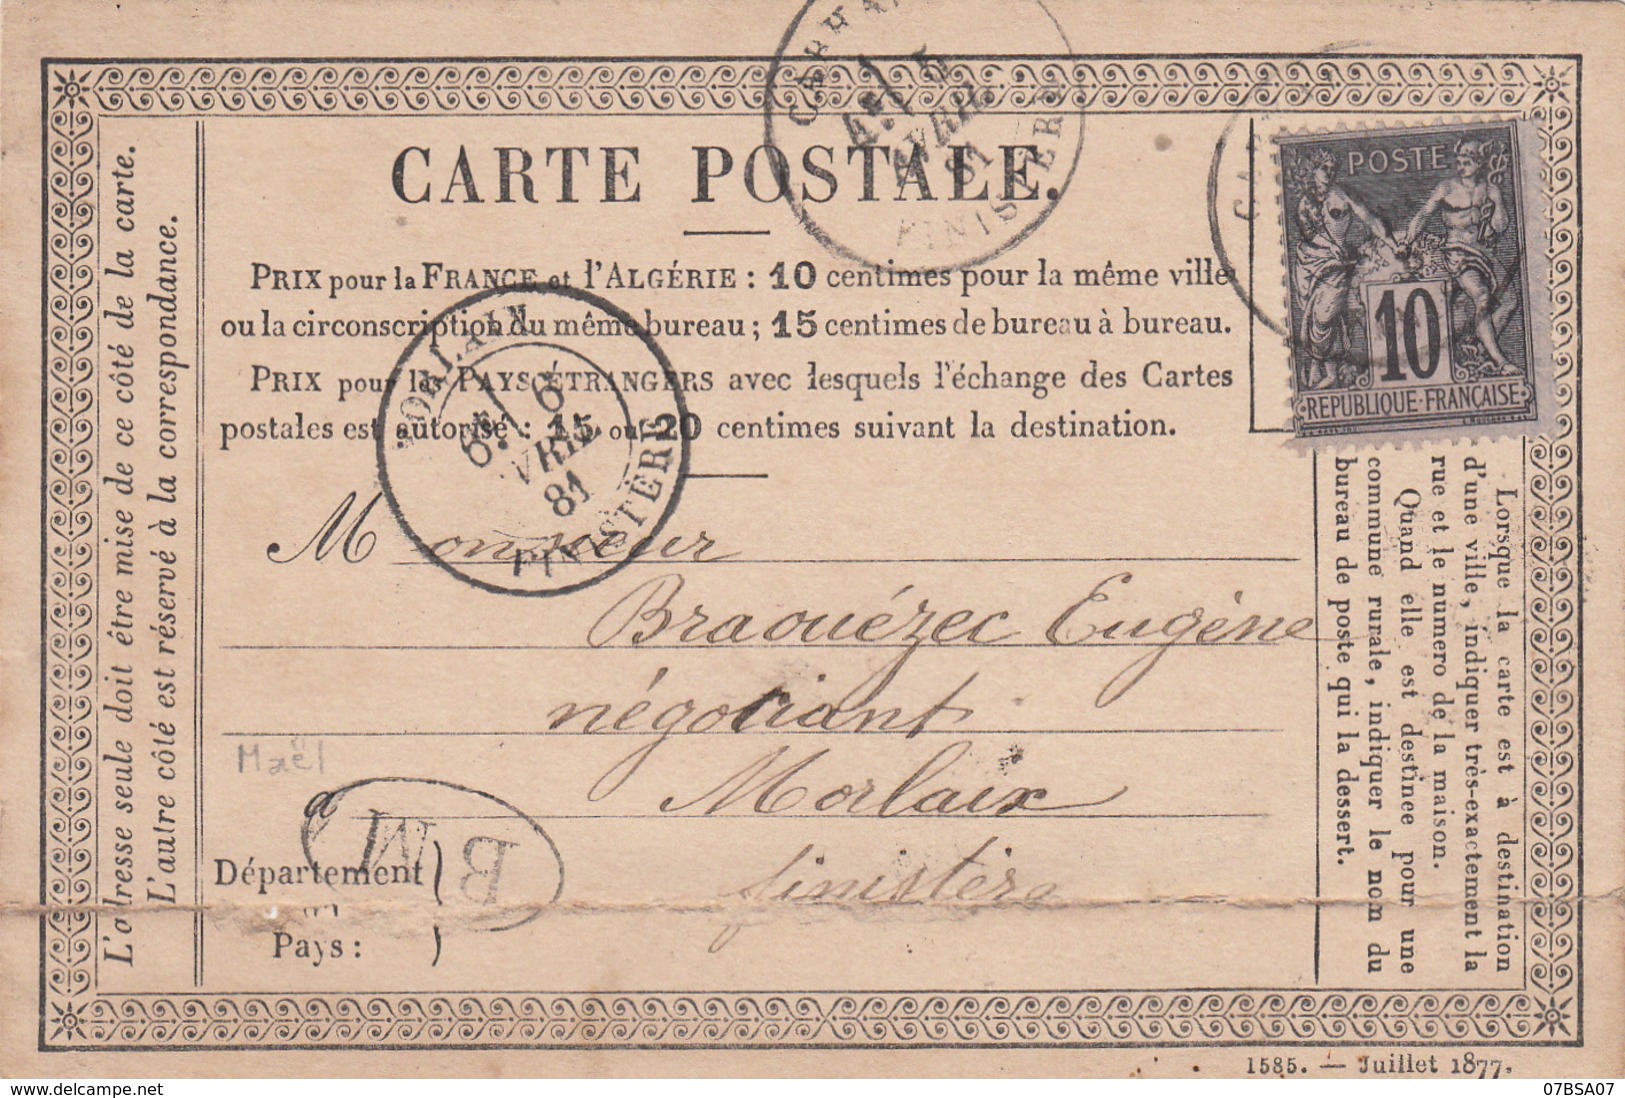 CARTE POSTALE.
PRIX pour la FRANCE et l'ALGÉRIE : 10 centimes pour la même ville
ou la circonscription du même bureau ; 15 centimes de bureau à bureau.
PRIX pour les PAYS ÉTRANGERS avec lesquels l'échange des Cartes
postales est autorisé : 15 ou 20 centimes suivant la destination.
Monsieur
Braouézec Eugène
négociant
à Morlaix
finistère
Département
ou
Pays :
Maël
BM
L'adresse seule doit être mise de ce côté de la carte.
L'autre côté est réservé à la correspondance.
Lorsque la carte est à destination
d'une ville, indiquer très-exactement la
rue et le numero de la maison.
Quand elle est destinee pour une
commune rurale, indiquer le nom du
bureau de poste qui la dessert.
POSTE
10
REPUBLIQUE FRANÇAISE
5
AVRIL
81
FINISTÈRE
6
81
FINISTÈRE
1585. — Juillet 1877.
07BSA07